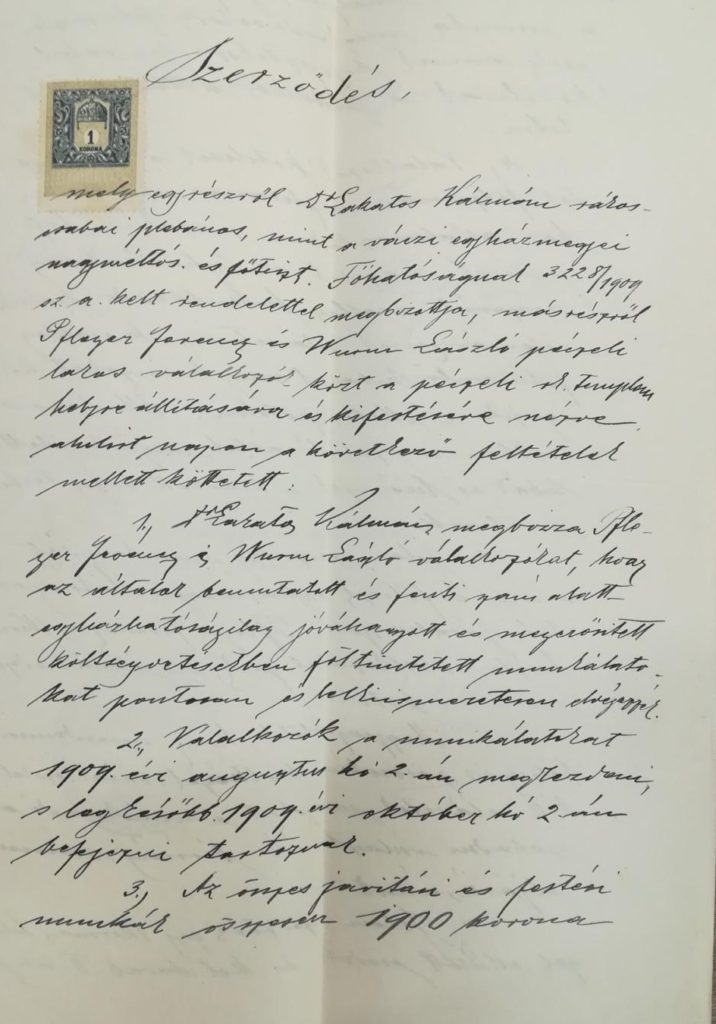 Szerződés,
1
KORONA
mely egyrészről Dr Lakatos Kálmán rákos-
csabai plebános, mint a váczi egyházmegyei
nagyméltós. és főtiszt. Főhatóságnak 3228/1909
sz. a. kelt rendelettel megbizottja, másrészről
Pfleger Ferencz és Wurm László péczeli
lakos vállalkozók közt a péczeli rk. templom
helyre állitására és kifestésére nézve
alulirt napon a következő feltételek
mellett köttetett:
1., Dr Lakatos Kálmán megbizza Pfle-
ger Ferencz és Wurm László válalkozókat, hogy
az általuk bemutatott és fenti szám alatt
egyházhatóságilag jóváhagyott és megerősitett
költségvetésekben föltüntetett munkálato-
kat pontosan és lelkiismeretesen elvégezzék.
2., Válalkozók a munkálatokat
1909. évi augusztus hó 2.-án megkezdeni,
s legkésőbb 1909. évi október hó 2-án
befejezni tartoznak.
3., Az összes javitási és festési
munkák összesen 1900 korona